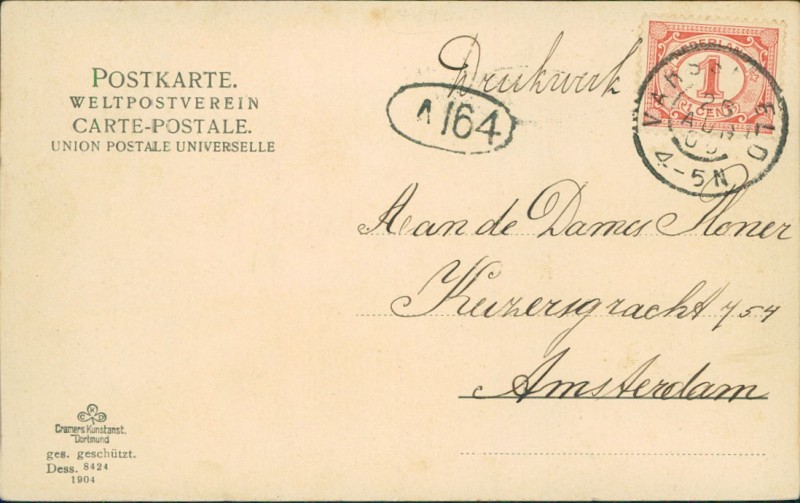 POSTKARTE.
WELTPOSTVEREIN
CARTE-POSTALE.
UNION POSTALE UNIVERSELLE
Drukwerk
A 164
NEDERLAND
1
CENT
VARSSEVELD
26 AUG
4-5N
Aan de Dames Moner
Keizersgracht 754
Amsterdam
K
C D
Cramers Kunstanst.
Dortmund
ges. geschützt.
Dess. 8424
1904